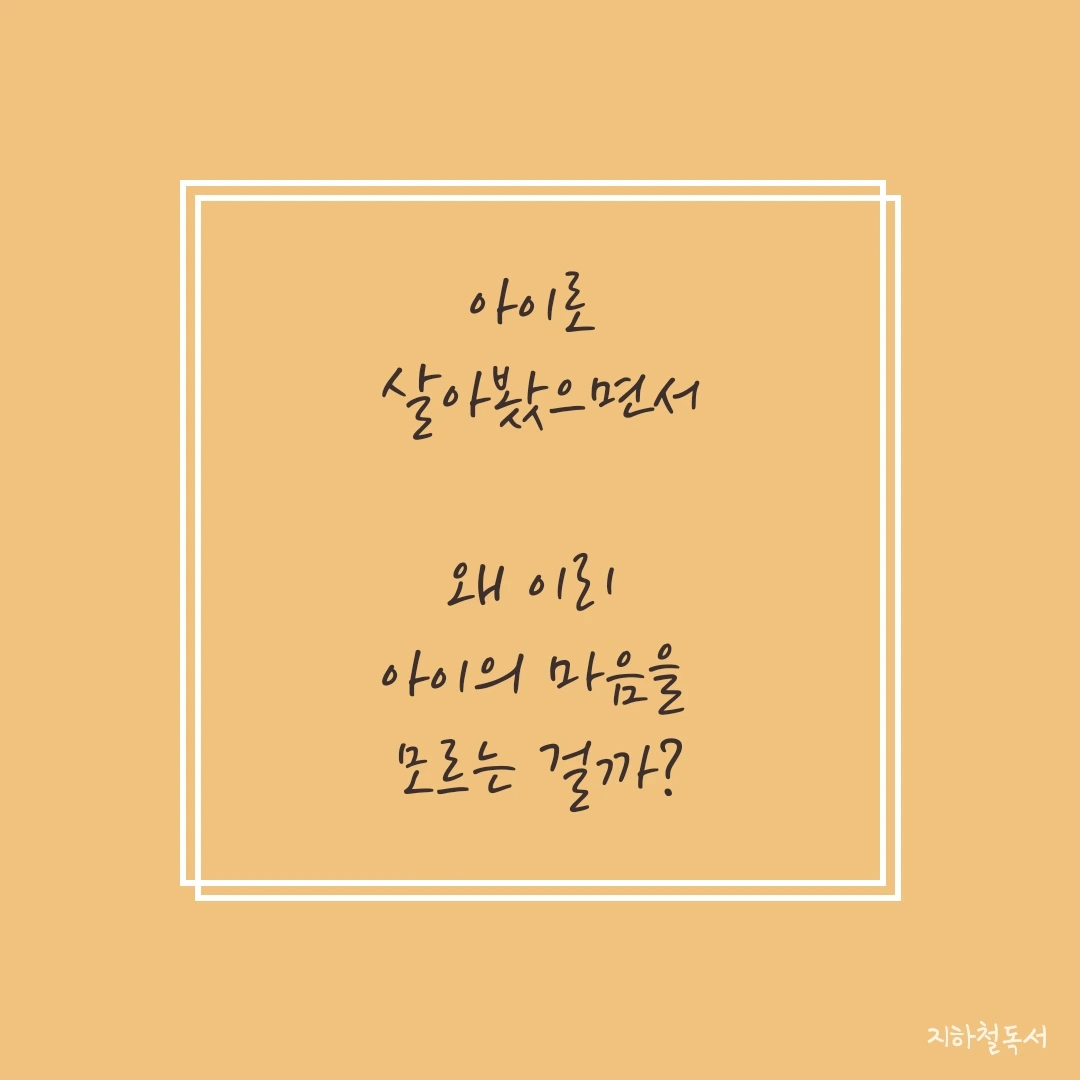 아이로
살아봤으면서
왜 이리
아이의 마음을
모르는 걸까?
지하철독서